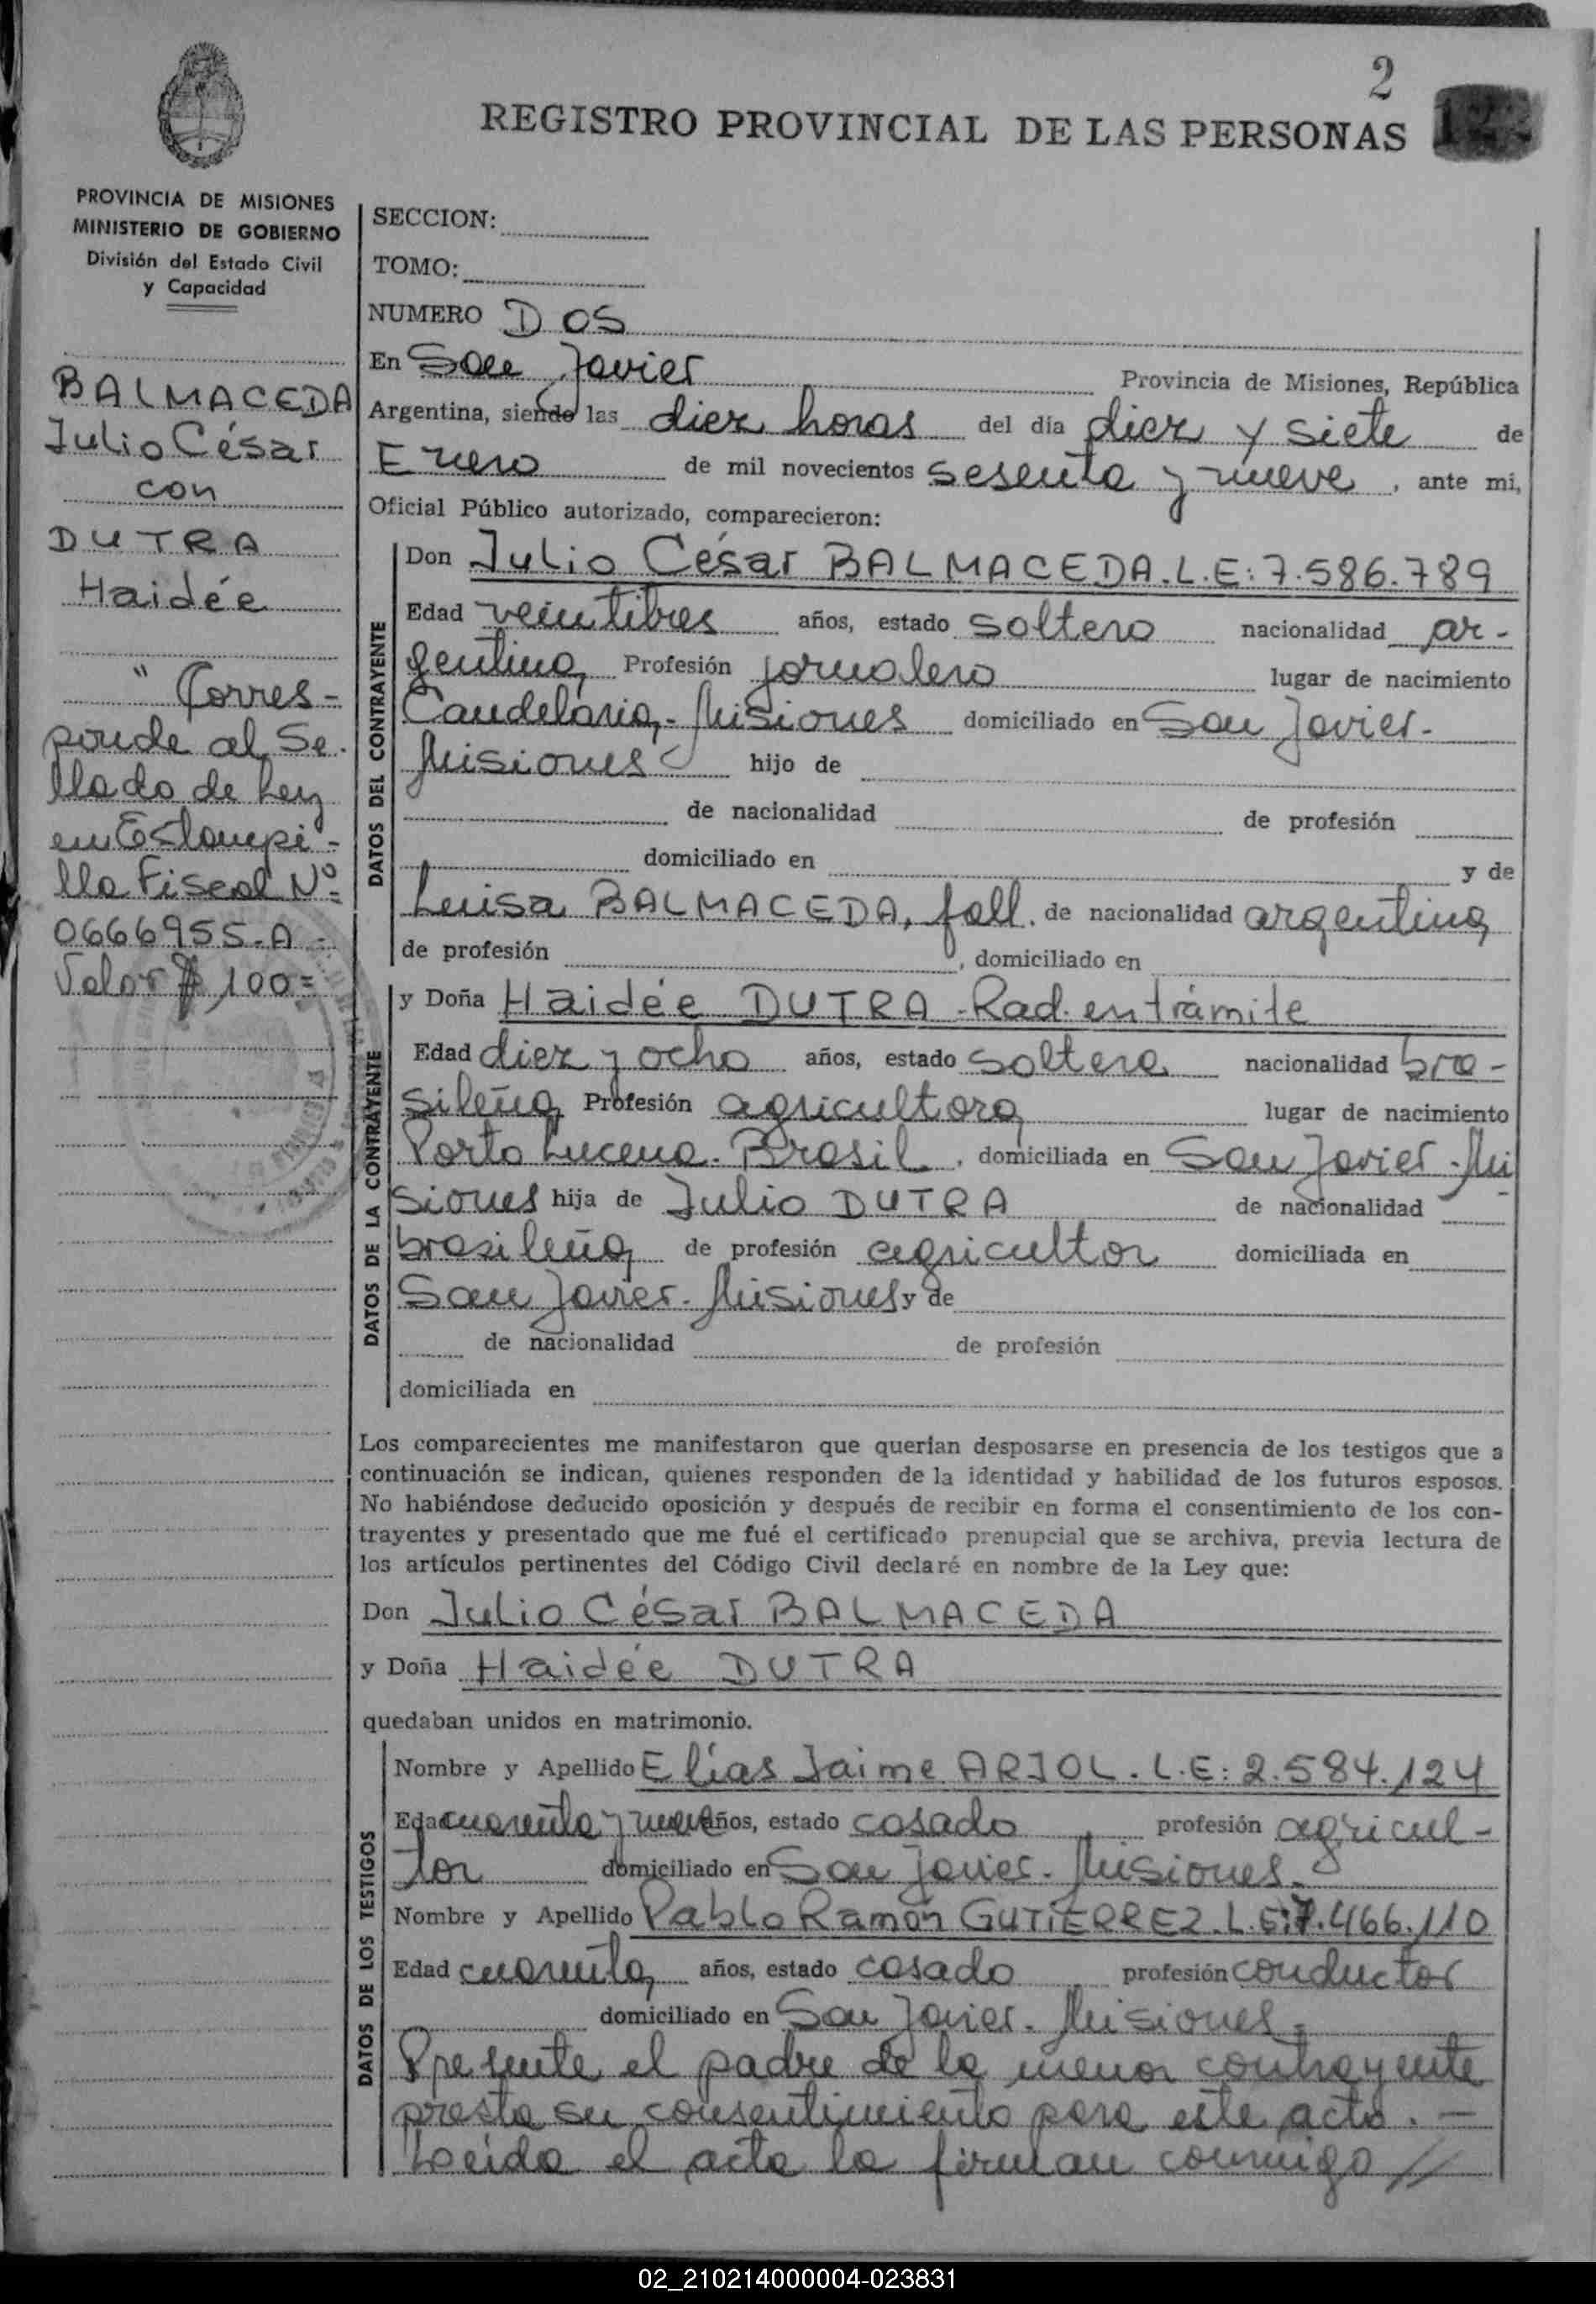 2
REGISTRO PROVINCIAL DE LAS PERSONAS
PROVINCIA DE MISIONES
MINISTERIO DE GOBIERNO
División del Estado Civil
y Capacidad
BALMACEDA
Julio César
con
DUTRA
Haidée
" Corres-
ponde al Se-
llado de Ley
en Estampi-
lla Fiscal Nº
0666955-A-
Valor $ 100=
SECCION:
TOMO:
NUMERO DOS
En San Javier Provincia de Misiones, República
Argentina, siendo las diez horas del día diez y siete de
Enero de mil novecientos sesenta y nueve, ante mi,
Oficial Público autorizado, comparecieron:
DATOS DEL CONTRAYENTE
Don Julio César BALMACEDA.L.E:7.586.789
Edad veintitres años, estado soltero nacionalidad ar-
gentina Profesión jornalero lugar de nacimiento
Candelaria,-Misiones domiciliado en San Javier.
Misiones hijo de
de nacionalidad de profesión
domiciliado en y de
Luisa BALMACEDA, fall. de nacionalidad argentina
de profesión , domiciliado en
DATOS DE LA CONTRAYENTE
y Doña Haidée DUTRA -Rad. en trámite
Edad diez y ocho años, estado soltera nacionalidad bra-
sileña Profesión agricultora lugar de nacimiento
Porto Lucena. Brasil, domiciliada en San Javier-Mi
siones hija de Julio DUTRA de nacionalidad
brasileña de profesión agricultor domiciliada en
San Javier. Misiones y de
de nacionalidad de profesión
domiciliada en
Los comparecientes me manifestaron que querían desposarse en presencia de los testigos que a
continuación se indican, quienes responden de la identidad y habilidad de los futuros esposos.
No habiéndose deducido oposición y después de recibir en forma el consentimiento de los con-
trayentes y presentado que me fué el certificado prenupcial que se archiva, previa lectura de
los artículos pertinentes del Código Civil declaré en nombre de la Ley que:
Don Julio César BALMACEDA
y Doña Haidée DUTRA
quedaban unidos en matrimonio.
DATOS DE LOS TESTIGOS
Nombre y Apellido Elías Jaime ARJOL. L.E: 2.584.124
Edad cuarenta y nueve años, estado casado profesión agricul-
tor domiciliado en San Javier. Misiones.
Nombre y Apellido Pablo Ramón GUTIERREZ.L.E:7.466.110
Edad cuarenta años, estado casado profesión conductor
domiciliado en San Javier. Misiones.
Presente el padre de la menor contrayente
presta su consentimiento para este acto.-
Leída el acta la firman conmigo //
02_210214000004-023831